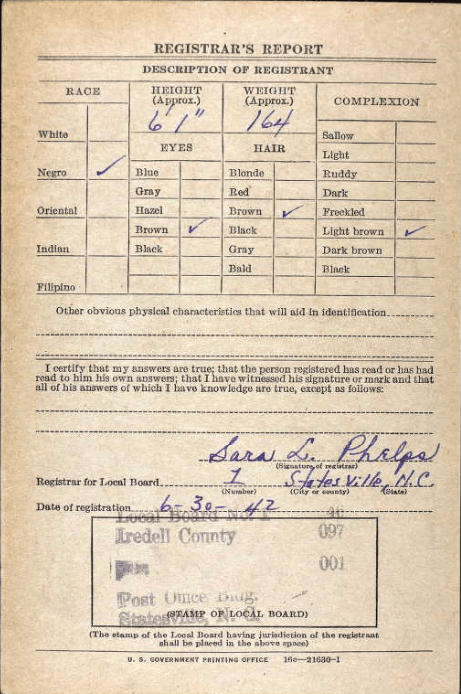 REGISTRAR'S REPORT
DESCRIPTION OF REGISTRANT
RACE
HEIGHT (Approx.)
WEIGHT (Approx.)
COMPLEXION
6' 1"
164
White
EYES
HAIR
Sallow
Light
Negro ✓
Blue
Blonde
Ruddy
Gray
Red
Dark
Oriental
Hazel
Brown ✓
Freckled
Brown ✓
Black
Light brown ✓
Indian
Black
Gray
Dark brown
Bald
Black
Filipino
Other obvious physical characteristics that will aid in identification
I certify that my answers are true; that the person registered has read or has had
read to him his own answers; that I have witnessed his signature or mark and that
all of his answers of which I have knowledge are true, except as follows:
Sara L. Phelps
(Signature of registrar)
Registrar for Local Board 1 Statesville, N.C.
(Number) (City or county) (State)
Date of registration 6-30-42
Local Board No. 1 46
Iredell County 097
001
Post Office Bldg.
(STAMP OF LOCAL BOARD)
Statesville, N. C.
(The stamp of the Local Board having jurisdiction of the registrant
shall be placed in the above space)
U. S. GOVERNMENT PRINTING OFFICE 16c—21630-1